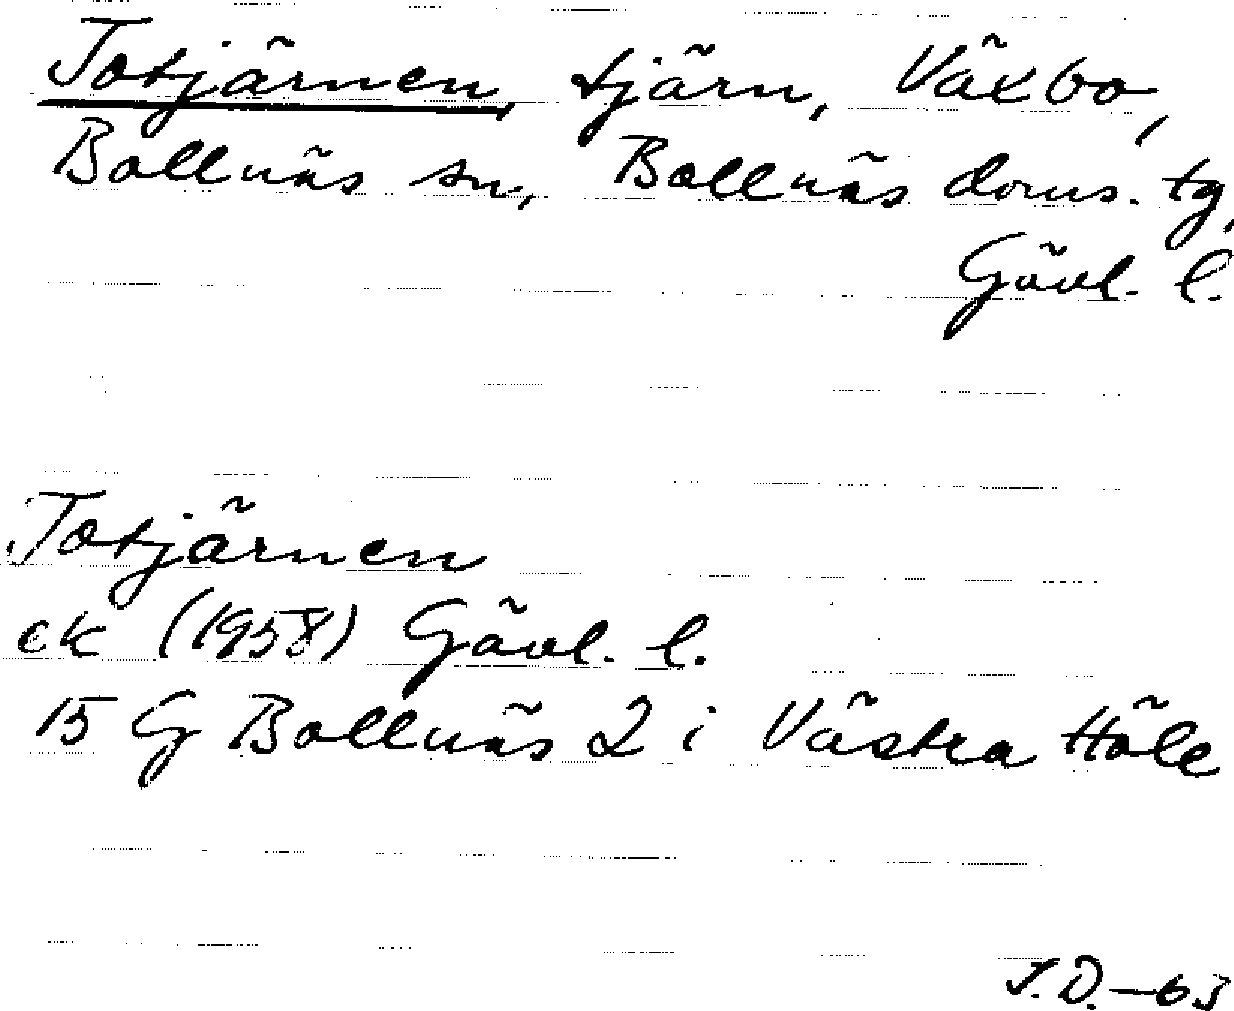 Totjärnen, tjärn, Växbo,
Bollnäs sn, Bollnäs doms. tg,
Gävl. l.
Totjärnen
ek (1958) Gävl. l.
15 G Bollnäs 2 i Västra Höle
J.D.—63